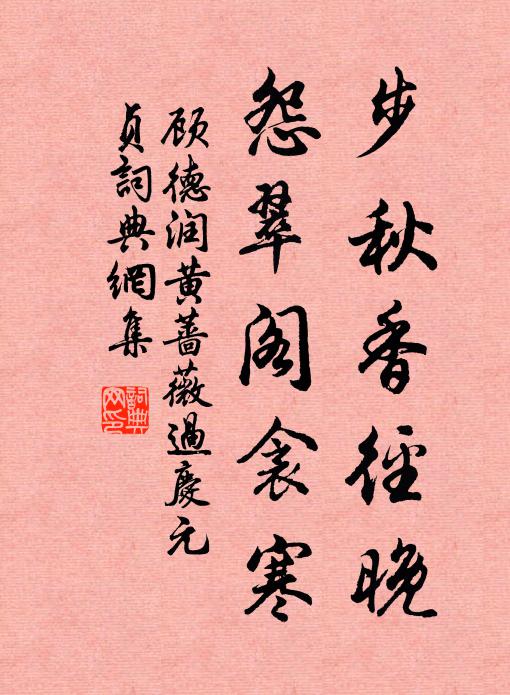 步秋香径晚
怨翠阁衾寒
顾德润黄蔷薇過慶元
貞詞典網集
詞典
网印